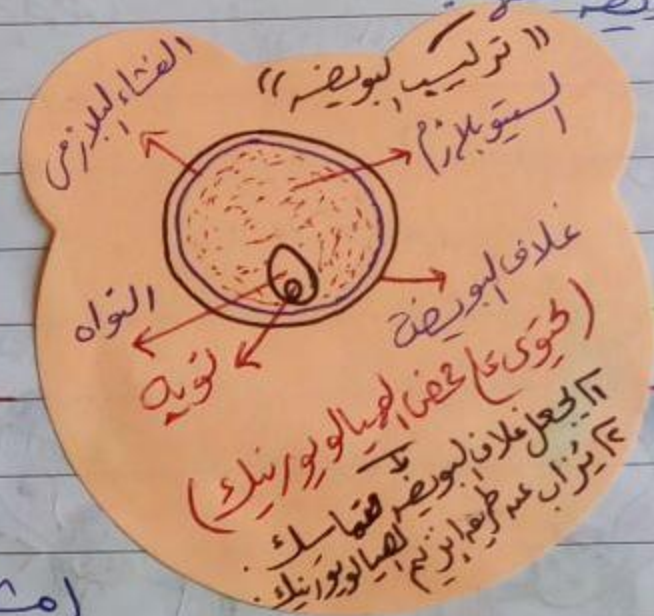 " تركيب البويضه "
الغشاء البلازمى
السيتوبلازم
غلاف البويضة
النواه
نويه
(يحتوى على حمض الهيالويورنيك)
١/ يجعل غلاف البويضه متماسك.
٢/ يُذاب عن طريق إنزيم الهيالويورنيك.